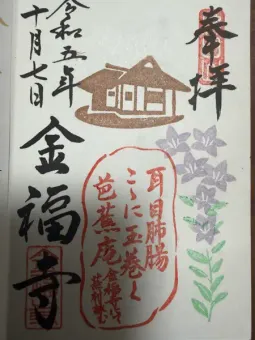 奉拝
耳目肺腸
こゝに玉巻く
芭蕉庵
金福寺
令和五年
十月七日